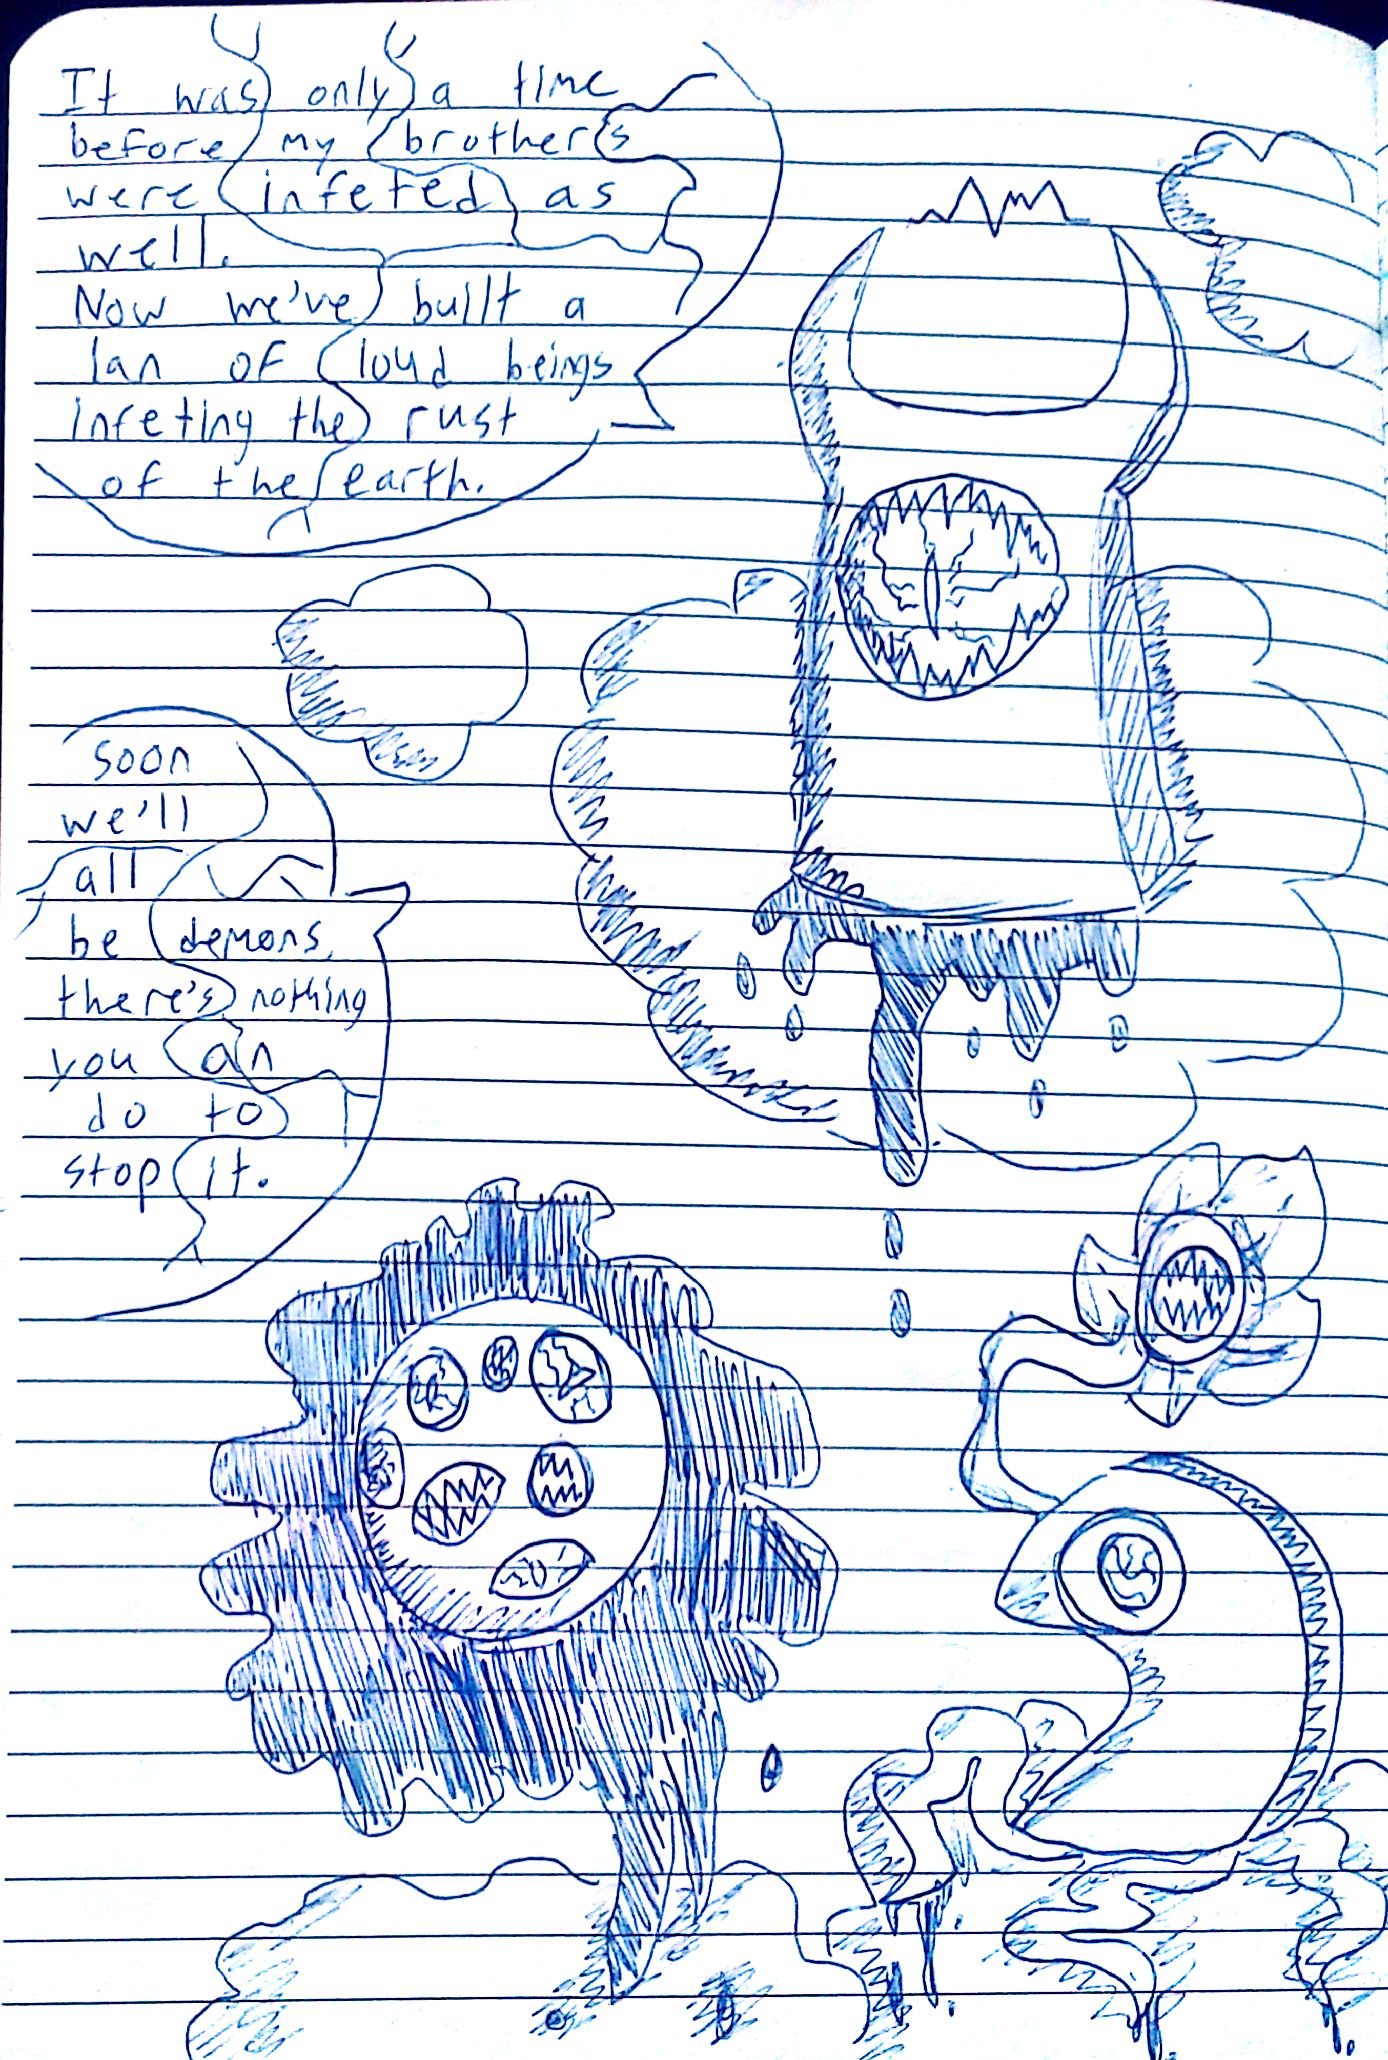 It was only a time
before my brothers
were infeted as
well.
Now we've built a
lan of loud beings
infeting the rust
of the earth.
soon
we'll
all
be demons,
there's nothing
you an
do to
stop it.